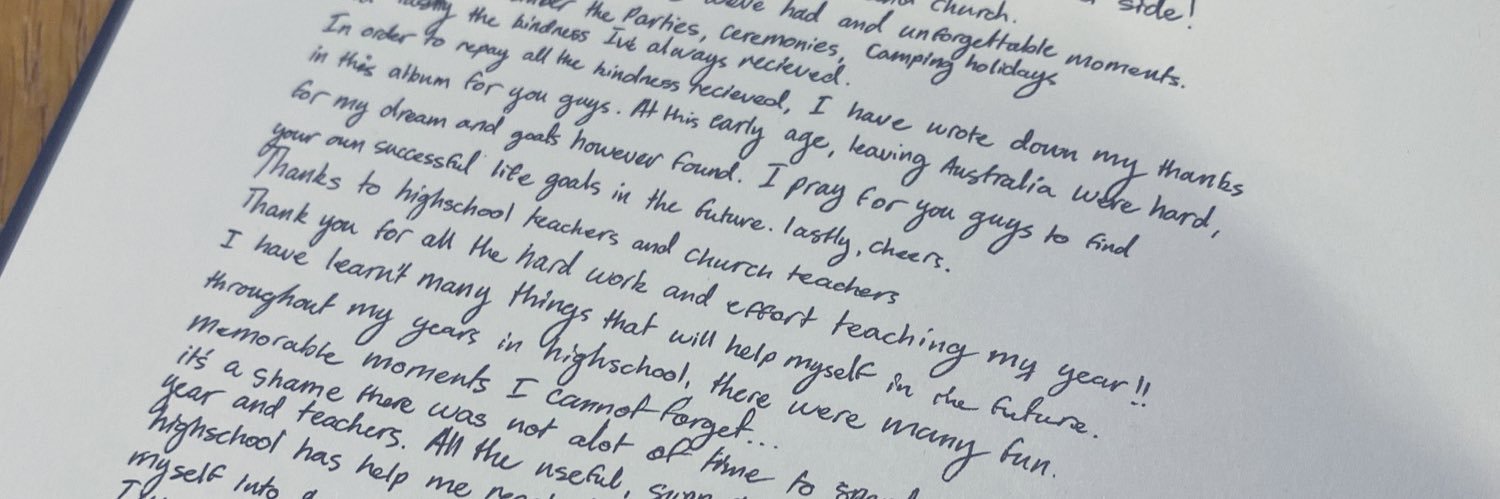 side!
and church.
we've had and unforgettable moments.
the Parties, ceremonies, Camping holidays
the kindness Ive always recieved.
In order to repay all the kindness recieved, I have wrote down my thanks
in this album for you guys. At this early age, leaving Australia were hard,
for my dream and goals however found. I pray for you guys to find
your own successful life goals in the future. lastly, cheers.
Thanks to highschool teachers and church teachers
Thank you for all the hard work and effort teaching my year!!
I have learn't many things that will help myself in the future.
throughout my years in highschool, there were many fun.
memorable moments I cannot forget...
it's a shame there was not alot of time to
year and teachers. All the useful,
highschool has help me
myself into a